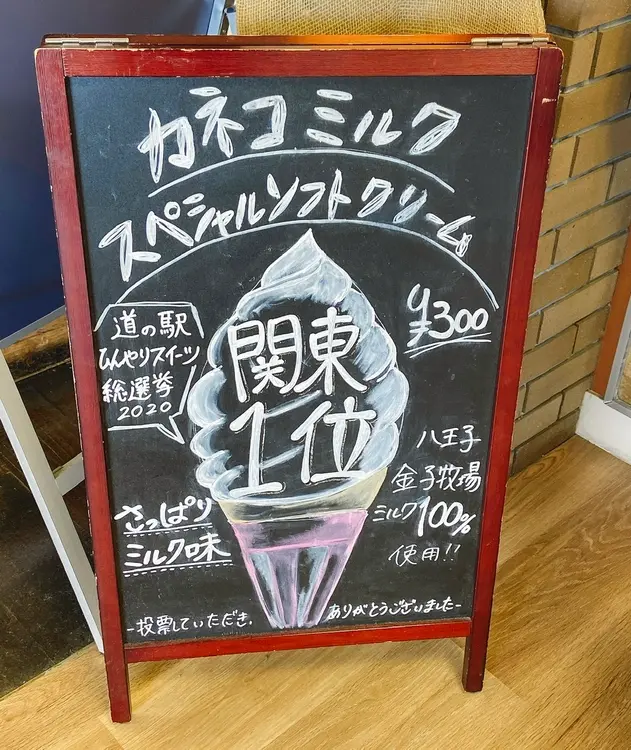 カネコミルク
スペシャルソフトクリーム
¥300
道の駅
ひんやりスイーツ
総選挙
2020
関東
1位
八王子
金子牧場
ミルク100%
使用!!
さっぱり
ミルク味
-投票していただき、ありがとうございました-